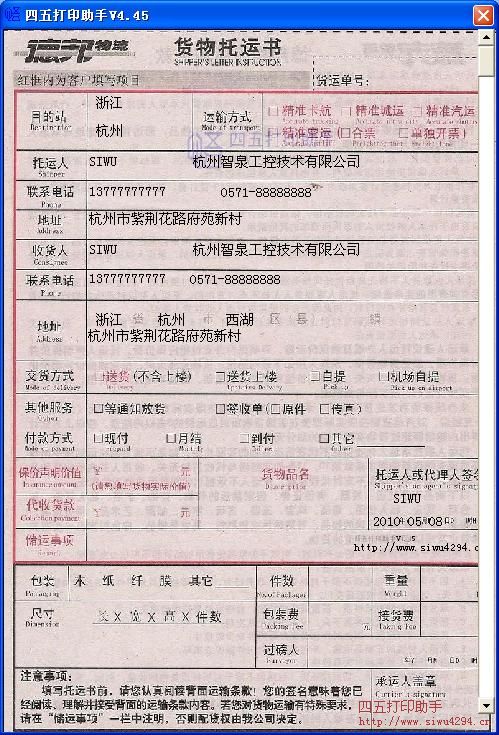 四五打印助手V4.45
德邦物流 货物托运书
SHIPPER'S LETTER INSTRUCTION
红框内为客户填写项目 货运单号:
目的站 浙江 杭州 运输方式 □精准卡航 □精准城运 □精准汽运
Destination Mode of transport □精准空运(□合票 □单独开票)
四五打印
托运人 SIWU 杭州智泉工控技术有限公司
Shipper
联系电话 13777777777 0571-88888888
Phone
地址 杭州市紫荆花路府苑新村
Address
收货人 SIWU 杭州智泉工控技术有限公司
Consignee
联系电话 13777777777 0571-88888888
Phone
地址 浙江 省 杭州 市 西湖 区(县) 镇
Address 杭州市紫荆花路府苑新村
交货方式 □送货(不含上楼) □送货上楼 □自提 □机场自提
Mode of delivery Delivery Pick up Pick up on airport
其他服务 □等通知放货 □签收单(□原件 □传真)
Other
付款方式 □现付 □月结 □到付 □其它
Mode of payment Prepaid Monthly Collect Other
保价声明价值 元 货物品名 托运人或代理人签名
Insurance amount (请您填写货物实际价值) Description Shipper's or agent's signa
代收货款 元 SIWU
Collection payment 2010年05月08日
储运事项 V4.45
Remark http://www.siwu4294.c
包装 木 纸 纤 膜 其它 件数 重量
Packaging No.of Packages Weight
尺寸 长X宽X高X件数 包装费 元 接货费
Dimension Packing Fee Taking Fee
过磅人 年 月 日
Surveyor
注意事项: 承运人盖章
填写托运书前,请您认真阅读背面运输条款!您的签名意味着您已 Carrier's signature
经阅读、理解并接受背面的运输条款内容。若您对货物运输有特殊要求, 四五打印助手
请在“储运事项”一栏中注明,否则配货权由我公司决定。 http://www.siwu4294.c